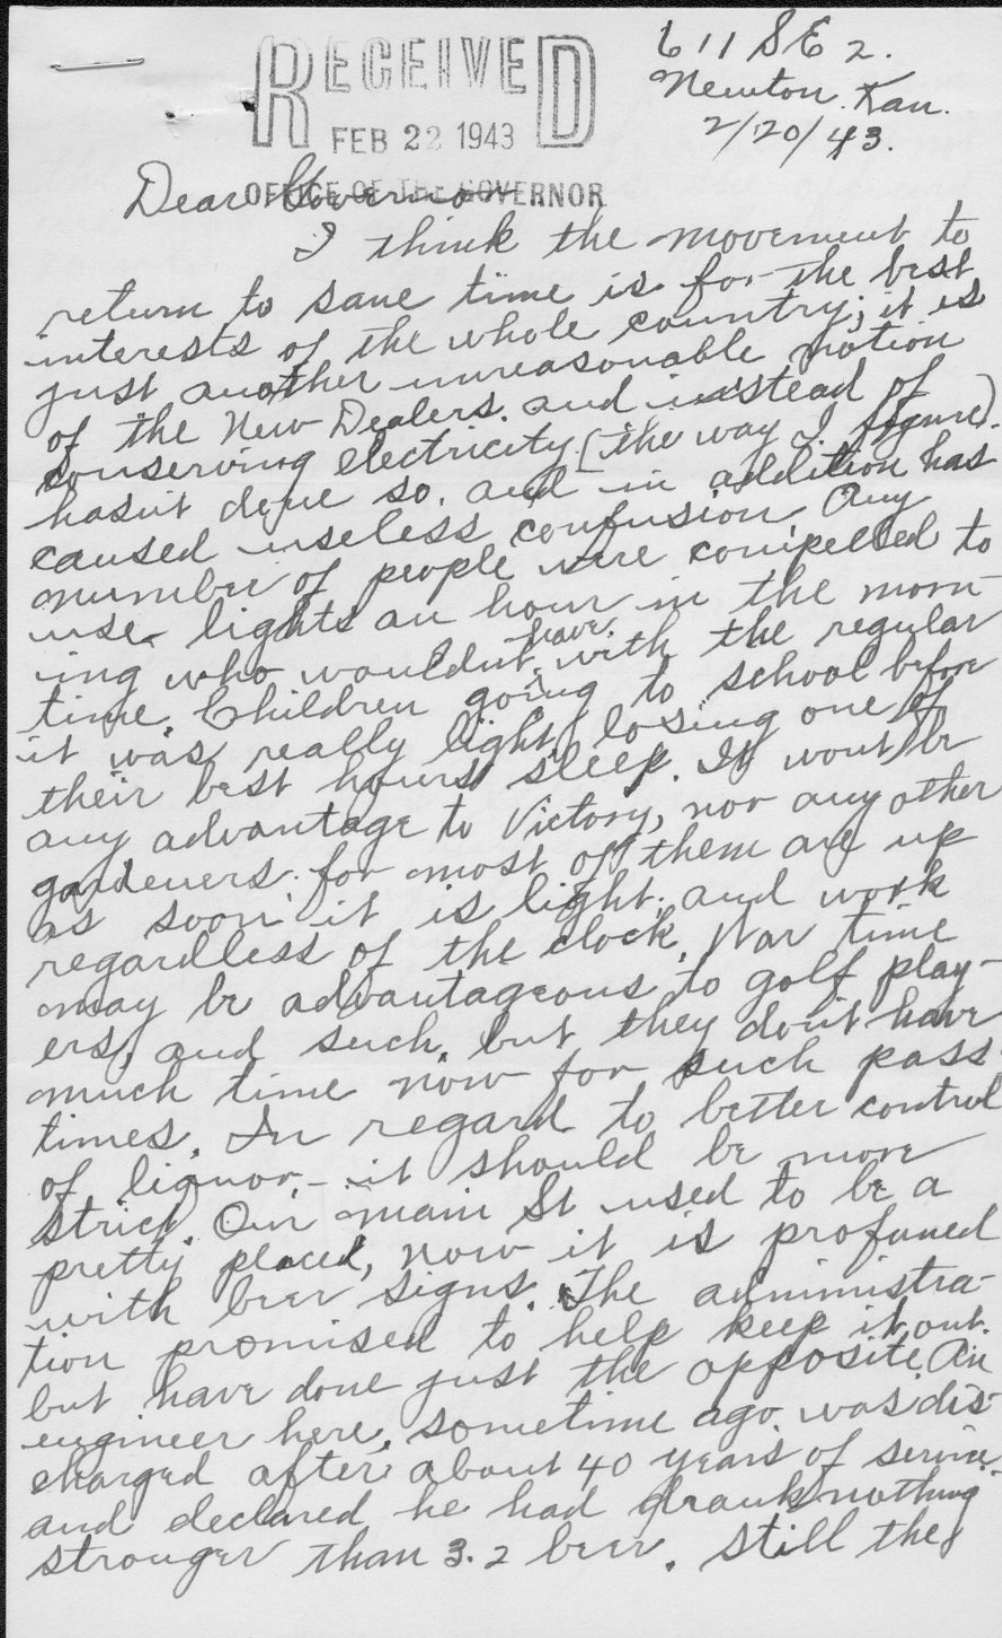 RECEIVED
FEB 22 1943
OFFICE OF THE GOVERNOR
611 SE 2.
Newton. Kan.
2/20/43.
Dear Governor
I think the movement to
return to sane time is for the best
interests of the whole country; it is
just another unreasonable notion
of the New Dealers. and instead of
conserving electricity (the way I figure).
hasn't done so. and in addition has
caused useless confusion. Any
number of people were compelled to
use lights an hour in the morn-
ing who wouldn't have. with the regular
time. Children going to school before
it was really light, losing one of
their best hours sleep. It wont be
any advantage to Victory, nor any other
gardeners. for most of them are up
as soon it is light. and work
regardless of the clock. War time
may be advantageous to golf play-
ers, and such. but they don't have
much time now for such pass
times. In regard to better control
of liquor, - it should be more
strict. Our main St used to be a
pretty placed, now it is profaned
with beer signs. The administra-
tion promised to help keep it out.
but have done just the opposite. An
engineer here, sometime ago. was dis-
charged after about 40 years of service.
and declared he had drank nothing
stronger than 3.2 beer. Still they